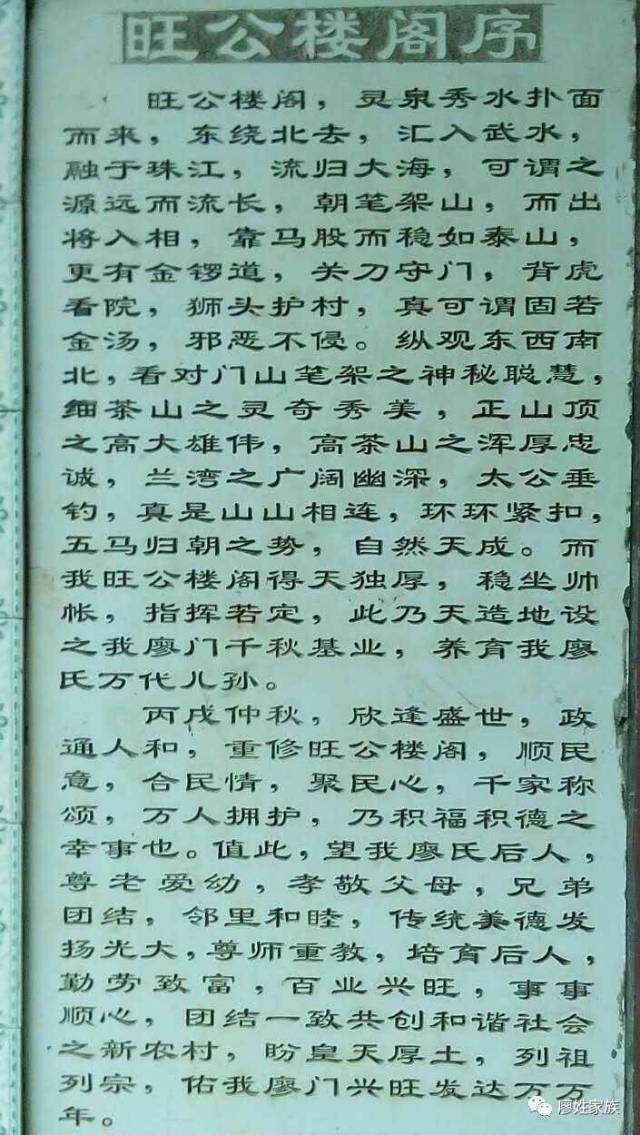 旺公楼阁序
旺公楼阁，灵泉秀水扑面
而来，东绕北去，汇入武水，
融于珠江，流归大海，可谓之
源远而流长，朝笔架山，而出
将入相，靠马股而稳如泰山，
更有金锣道，关刀守门，背虎
看院，狮头护村，真可谓固若
金汤，邪恶不侵。纵观东西南
北，看对门山笔架之神秘聪慧，
细茶山之灵奇秀美，正山顶
之高大雄伟，高茶山之浑厚忠
诚，兰湾之广阔幽深，太公垂
钓，真是山山相连，环环紧扣，
五马归朝之势，自然天成。而
我旺公楼阁得天独厚，稳坐帅
帐，指挥若定，此乃天造地设
之我廖门千秋基业，养育我廖
氏万代儿孙。
丙戌仲秋，欣逢盛世，政
通人和，重修旺公楼阁，顺民
意，合民情，聚民心，千家称
颂，万人拥护，乃积福积德之
幸事也。值此，望我廖氏后人，
尊老爱幼，孝敬父母，兄弟
团结，邻里和睦，传统美德发
扬光大，尊师重教，培育后人，
勤劳致富，百业兴旺，事事
顺心，团结一致共创和谐社会
之新农村，盼皇天厚土，列祖
列宗，佑我廖门兴旺发达万万
年。
廖姓家族